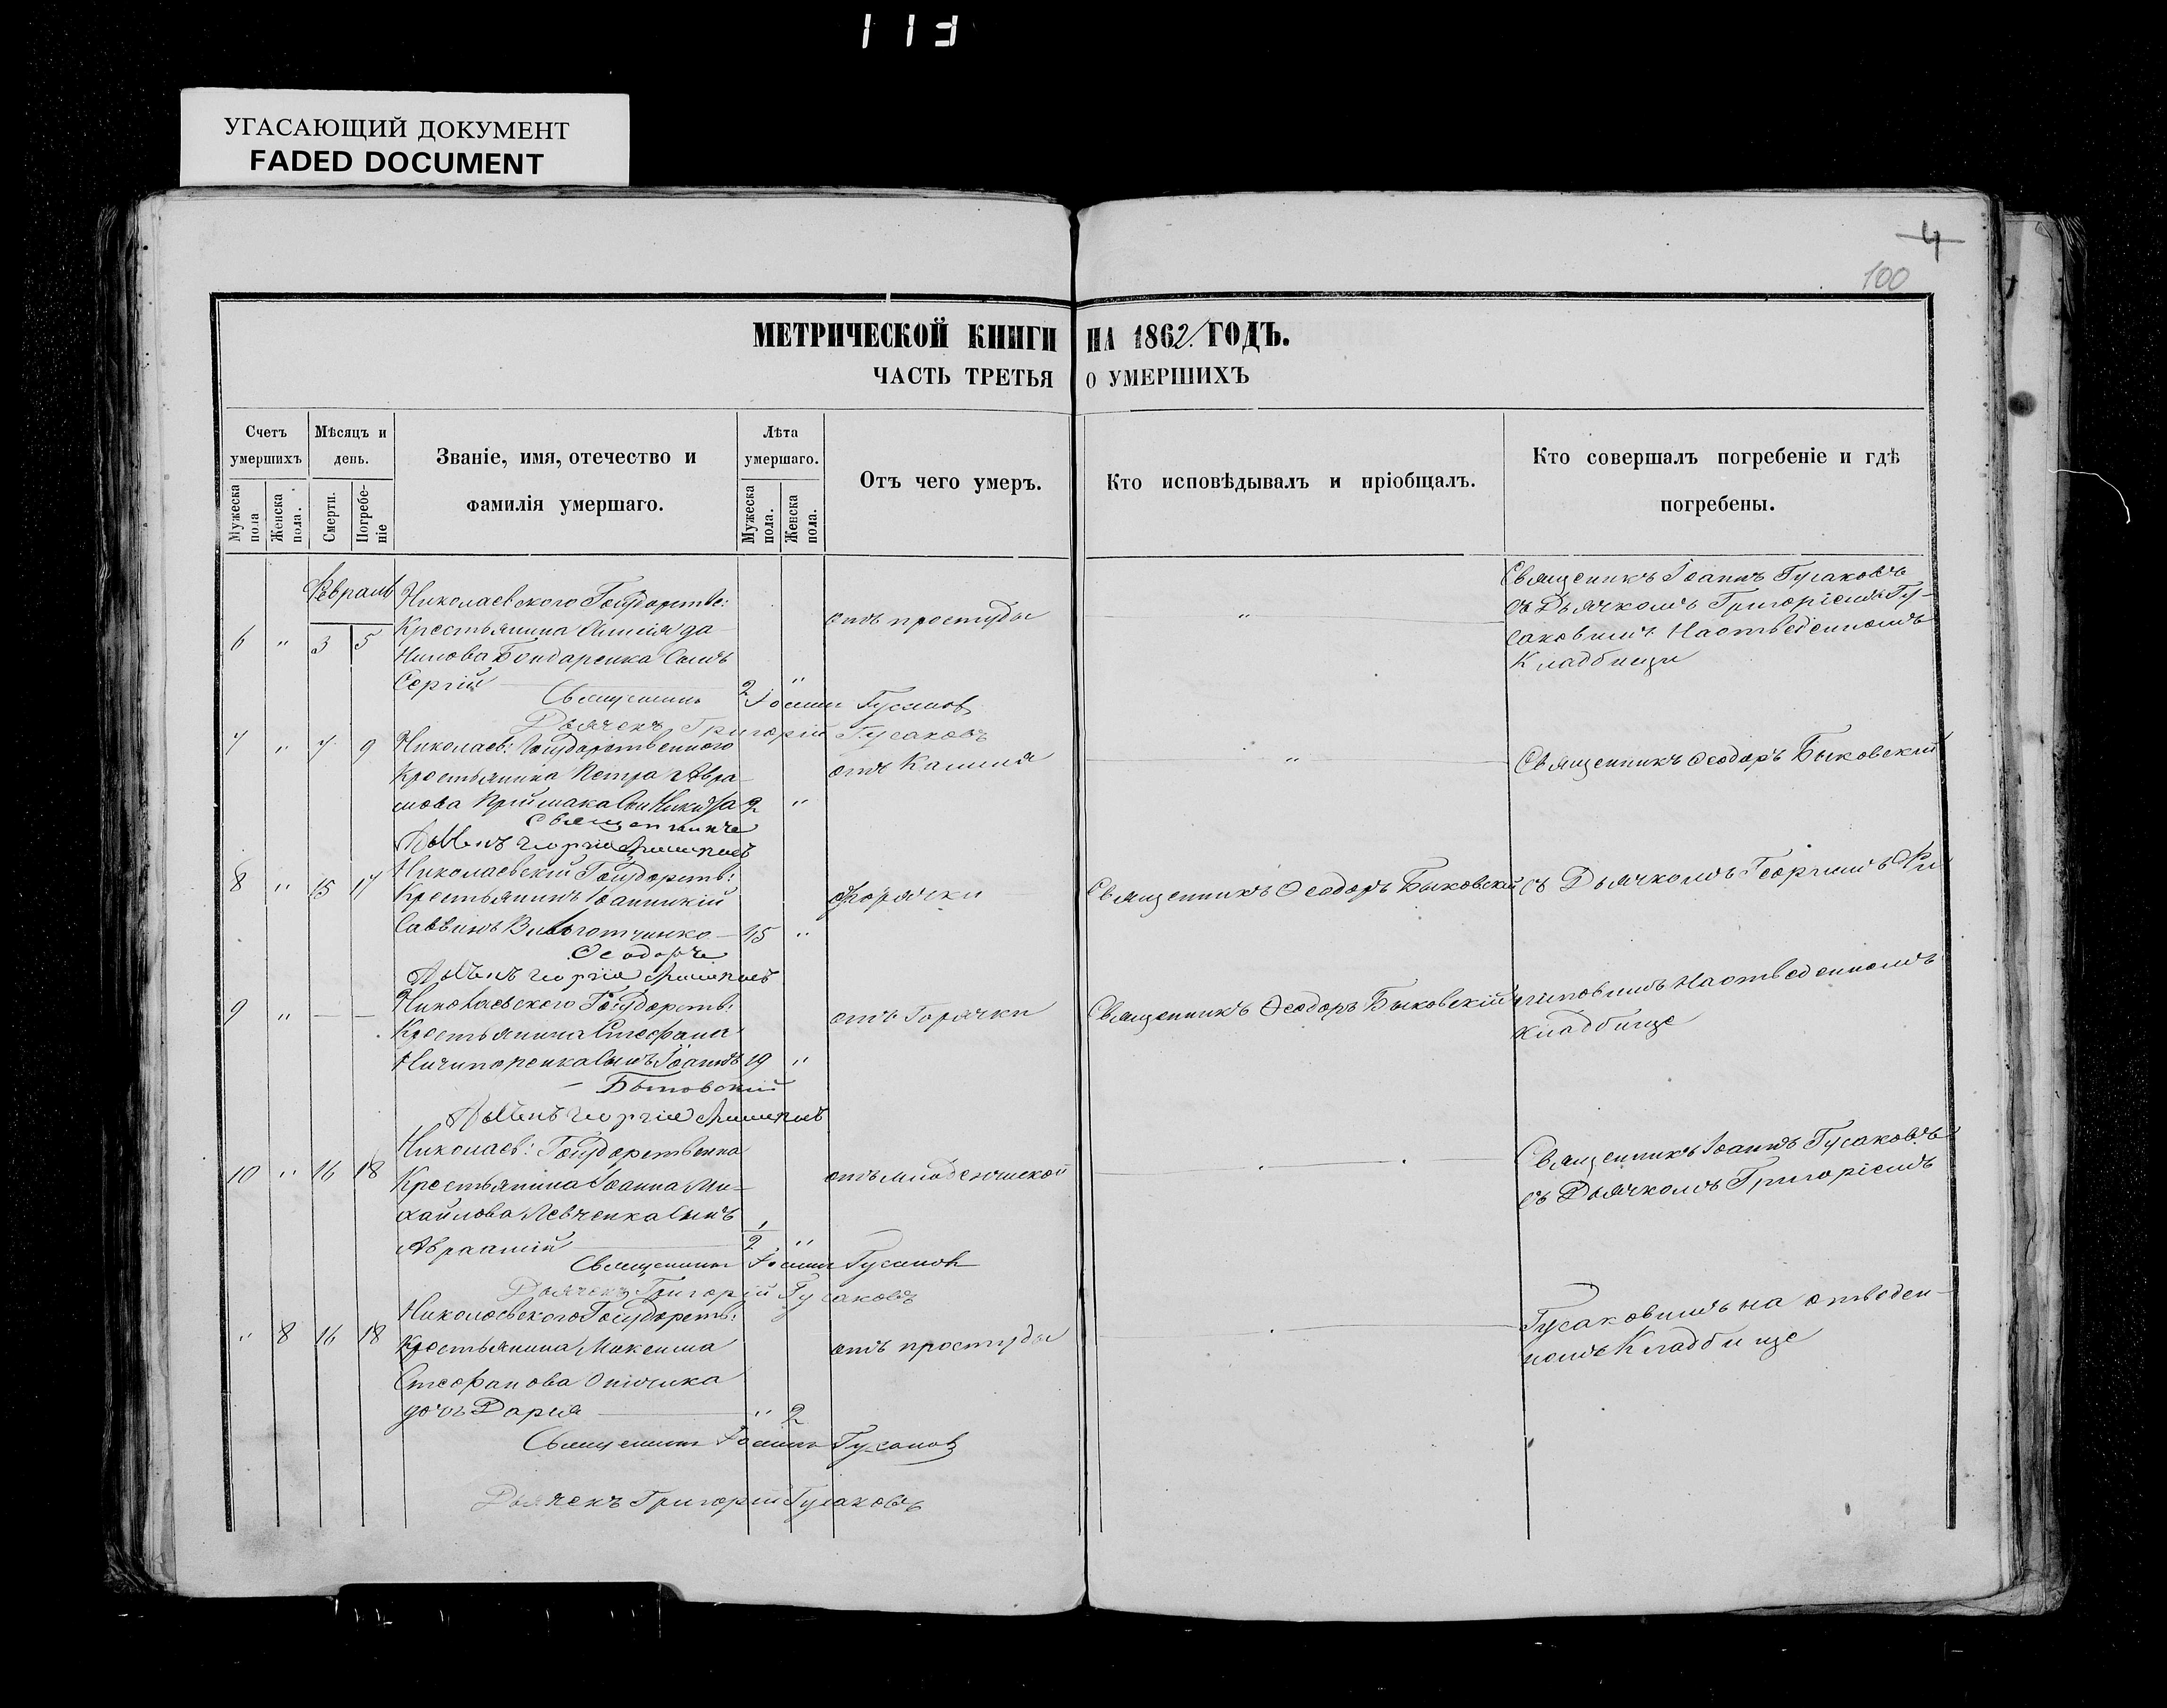 113
УГАСАЮЩИЙ ДОКУМЕНТ
FADED DOCUMENT
4
100
МЕТРИЧЕСКОЙ КНИГИ НА 1862 ГОДЪ.
ЧАСТЬ ТРЕТЬЯ О УМЕРШИХЪ
Счетъ умершихъ
Мѣсяцъ и день.
Званіе, имя, отечество и фамилія умершаго.
Лѣта умершаго.
Отъ чего умеръ.
Кто исповѣдывалъ и пріобщалъ.
Кто совершалъ погребеніе и гдѣ погребены.
Мужеска пола
Женска пола.
Смерти.
Погребеніе
Мужеска пола.
Женска пола.
Февраль
6 " 3 5
Николаевского Государстве:
Крестьянина
Бондаренка Сынъ
Сергій 2 "
отъ простуды
"
Священникъ Іоаннъ Гусаковъ
съ Дьячкомъ Григоріемъ Гу-
саковымъ На отведенномъ
Кладбищи
Священникъ Іоаннъ Гусаковъ
Дьячекъ Григорій Гусаковъ
7 " 7 9
Николаев: Государственного
Крестьянина Петра Авра-
мова Приймака Сынъ Никита 2 "
отъ Кашля
"
Священникъ Ѳеодоръ Быковскій
Священникъ
8 " 15 17
Николаевскій Государств:
Крестьянинъ Іоанникій
Саввинъ 45 "
Горячки
Священникъ Ѳеодоръ Быковскій
съ Дьячкомъ Георгіемъ
Ѳеодоръ
9 " — —
Николаевского Государств:
Крестьянина Стефана
Ничипоренка Сынъ Іоаннъ 19 "
отъ Горячки
Священникъ Ѳеодоръ Быковскій
На отведенномъ
кладбище
Быковскій
10 " 16 18
Николаев: Государственна
Крестьянина Іоанна Ми-
хайлова Левченка Сынъ
Авраамій 1/2 "
отъ младенческой
Священникъ Іоаннъ Гусаковъ
съ Дьячкомъ Григоріемъ
Священникъ Іоаннъ Гусаковъ
Дьячекъ Григорій Гусаковъ
" 8 16 18
Николаевского Государств:
Крестьянина Максима
Стефанова
дочь Дарія " 2
отъ простуды
Гусаковымъ на отведен-
номъ Кладбище
Священникъ Іоаннъ Гусаковъ
Дьячекъ Григорій Гусаковъ